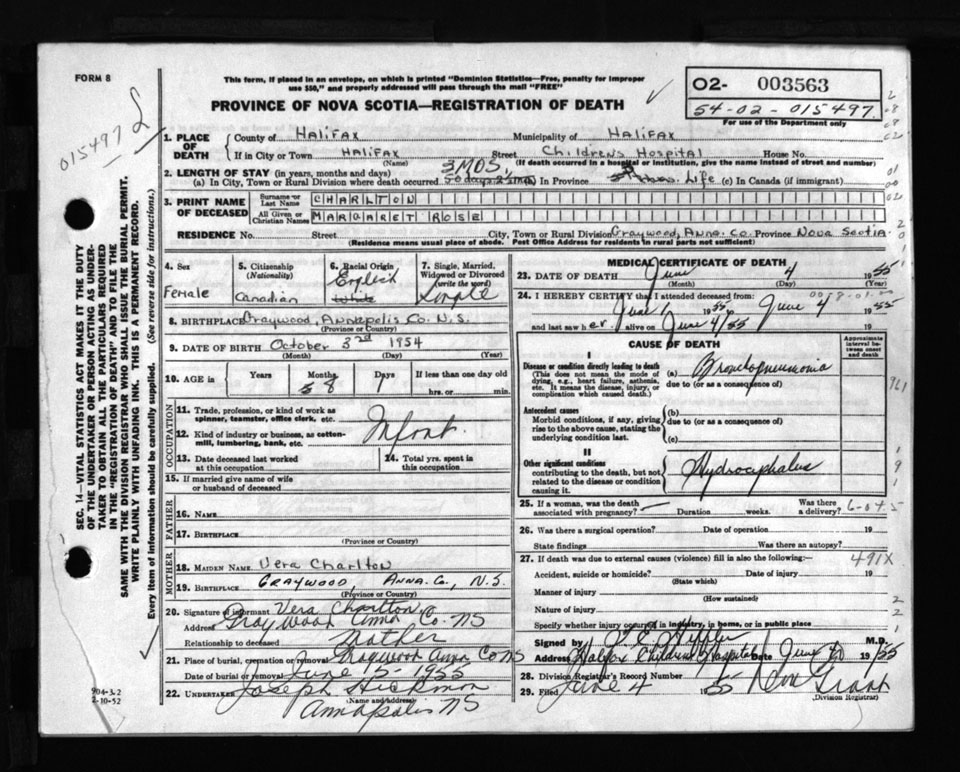 FORM 8
This form, if placed in an envelope, on which is printed "Dominion Statistics—Free, penalty for improper
use $50," and properly addressed will pass through the mail "FREE"
PROVINCE OF NOVA SCOTIA—REGISTRATION OF DEATH
O2- 003563
54-02-015497
For use of the Department only
015497
SEC. 14—VITAL STATISTICS ACT MAKES IT THE DUTY
OF THE UNDERTAKER OR PERSON ACTING AS UNDER-
TAKER TO OBTAIN ALL THE PARTICULARS REQUIRED
IN THE "REGISTRATION OF DEATH" AND TO FILE THE
SAME WITH THE DIVISION REGISTRAR WHO SHALL ISSUE THE BURIAL PERMIT.
WRITE PLAINLY WITH UNFADING INK. THIS IS A PERMANENT RECORD.
Every item of information should be carefully supplied. (See reverse side for instructions.)
1. PLACE OF DEATH
County of Halifax Municipality of Halifax
If in City or Town Halifax Street Childrens Hospital House No.
(Name) (If death occurred in a hospital or institution, give the name instead of street and number)
2. LENGTH OF STAY (in years, months and days)
3 MOS.
(a) In City, Town or Rural Division where death occurred (b) In Province Life (c) In Canada (if immigrant)
3. PRINT NAME OF DECEASED
Surname or Last Name CHARLTON
All Given or Christian Names MARGARET ROSE
RESIDENCE No. Street City, Town or Rural Division Graywood, Anna. Co. Province Nova Scotia
(Residence means usual place of abode. Post Office Address for residents in rural parts not sufficient)
4. Sex
Female
5. Citizenship (Nationality)
Canadian
6. Racial Origin
English
White
7. Single, Married, Widowed or Divorced (write the word)
Single
8. BIRTHPLACE Graywood, Annapolis Co. N.S.
(Province or Country)
9. DATE OF BIRTH October 3rd 1954
(Month) (Day) (Year)
10. AGE in
Years Months Days If less than one day old
8 1 hrs. or min.
OCCUPATION
11. Trade, profession, or kind of work as
spinner, teamster, office clerk, etc.
12. Kind of industry or business, as cotton-
mill, lumbering, bank, etc.
Infant
13. Date deceased last worked
at this occupation
14. Total yrs. spent in
this occupation
15. If married give name of wife
or husband of deceased
FATHER
16. Name
17. Birthplace
(Province or Country)
MOTHER
18. Maiden Name Vera Charlton
19. Birthplace Graywood, Anna. Co., N.S.
(Province or Country)
20. Signature of informant Vera Charlton
Address Graywood Anna Co. NS
Relationship to deceased Mother
21. Place of burial, cremation or removal Graywood Anna Co NS
Date of burial or removal June 15-1955
22. Undertaker Joseph Hickman
(Name and address)
Annapolis NS
904-3.2
2-10-52
MEDICAL CERTIFICATE OF DEATH
23. DATE OF DEATH June 4 1955
(Month) (Day)
24. I HEREBY CERTIFY that I attended deceased from
June 1 1955 to June 4 1955
and last saw her alive on June 4/55
CAUSE OF DEATH
Approximate interval between onset and death
I
Disease or condition directly leading to death
(This does not mean the mode of
dying, e.g., heart failure, asthenia,
etc. It means the disease, injury, or
complication which caused death.)
(a) Bronchopneumonia
due to (or as a consequence of)
Antecedent causes
Morbid conditions, if any, giving
rise to the above cause, stating the
underlying condition last.
(b)
due to (or as a consequence of)
(c)
II
Other significant conditions
contributing to the death, but not
related to the disease or condition
causing it.
Hydrocephalus
25. If a woman, was the death
associated with pregnancy? — Duration weeks. Was there a delivery?
26. Was there a surgical operation? Date of operation 19
State findings Was there an autopsy?
27. If death was due to external causes (violence) fill in also the following:— 491X
Accident, suicide or homicide? Date of injury 19
(State which)
Manner of injury
(How sustained)
Nature of injury
Specify whether injury occurred in industry, in home, or in public place
Signed by M.D.
Address Halifax Childrens Hospital Date June 1955
28. Division Registrar's Record Number
29. Filed June 4 1955 Grant
(Division Registrar)